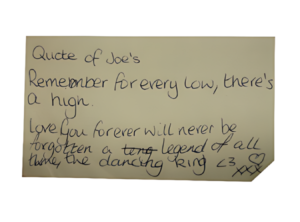 Quote of Joe's
Remember for every low, there's
a high.
love you forever will never be
forgotten a legend of all
time, the dancing king <3 ♡
xxx